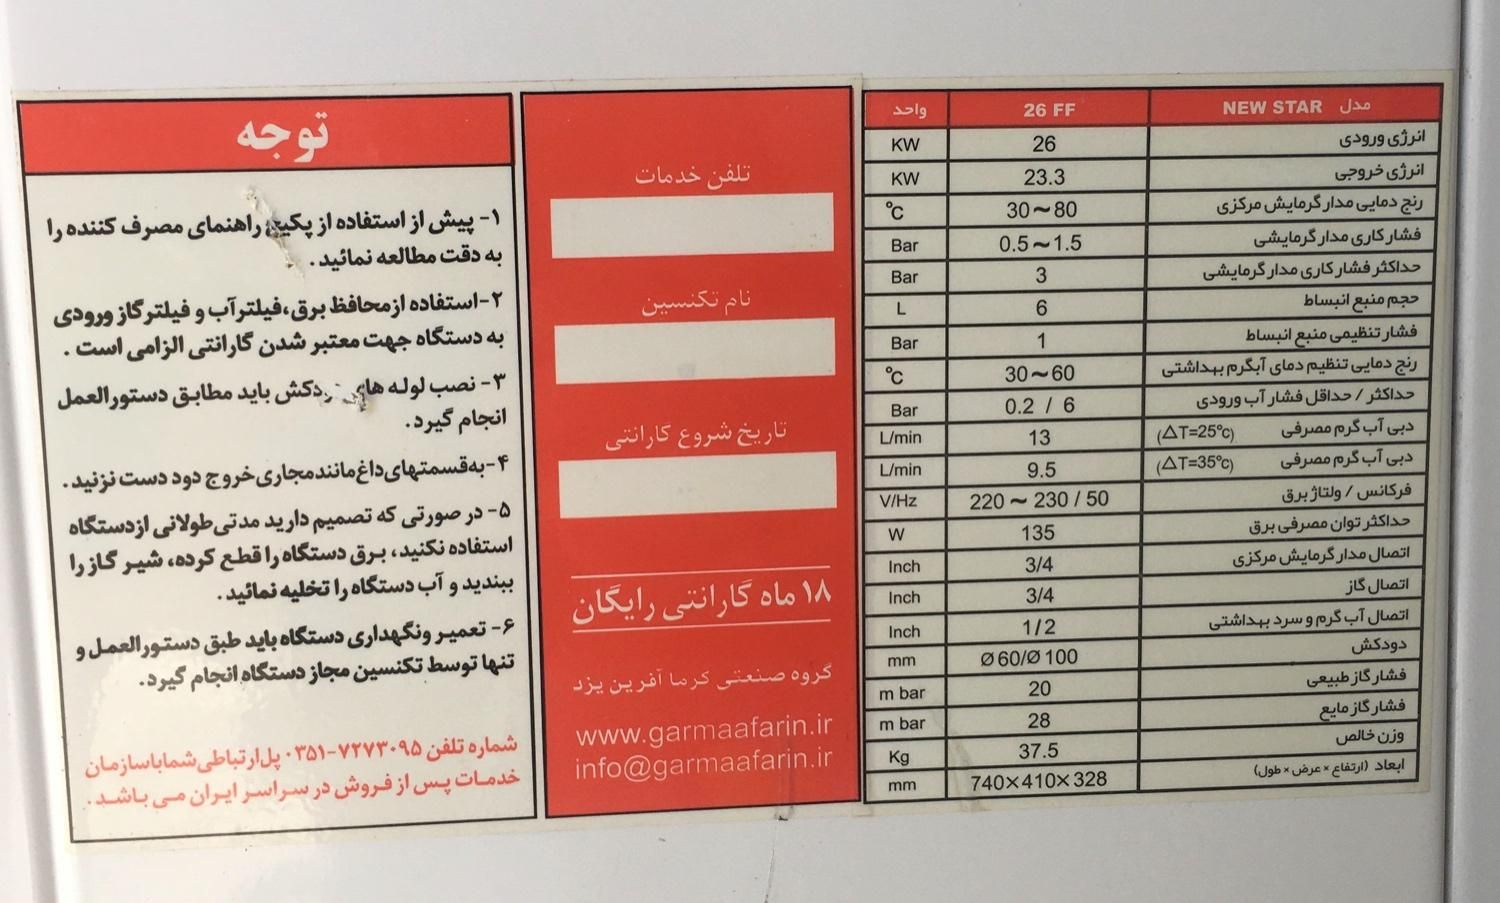 توجه
۱- پیش از استفاده از پکیج راهنمای مصرف کننده را
به دقت مطالعه نمائید.
۲- استفاده از محافظ برق، فیلتر آب و فیلتر گاز ورودی
به دستگاه جهت معتبر شدن گارانتی الزامی است .
۳- نصب لوله های دودکش باید مطابق دستورالعمل
انجام گیرد.
۴- به قسمتهای داغ مانند مجاری خروج دود دست نزنید.
۵- در صورتی که تصمیم دارید مدتی طولانی از دستگاه
استفاده نکنید، برق دستگاه را قطع کرده، شیر گاز را
ببندید و آب دستگاه را تخلیه نمائید.
۶- تعمیر و نگهداری دستگاه باید طبق دستورالعمل و
تنها توسط تکنسین مجاز دستگاه انجام گیرد.
شماره تلفن ۷۲۷۳۰۹۵-۰۳۵۱ پل ارتباطی شما با سازمان
خدمات پس از فروش در سراسر ایران می باشد.
تلفن خدمات
نام تکنسین
تاریخ شروع گارانتی
۱۸ ماه گارانتی رایگان
گروه صنعتی گرما آفرین یزد
www.garmaafarin.ir
info@garmaafarin.ir
مدل NEW STAR 26 FF واحد
انرژی ورودی 26 KW
انرژی خروجی 23.3 KW
رنج دمایی مدار گرمایش مرکزی 30~80 °C
فشار کاری مدار گرمایشی 0.5~1.5 Bar
حداکثر فشار کاری مدار گرمایشی 3 Bar
حجم منبع انبساط 6 L
فشار تنظیمی منبع انبساط 1 Bar
رنج دمایی تنظیم دمای آبگرم بهداشتی 30~60 °C
حداکثر / حداقل فشار آب ورودی 0.2 / 6 Bar
دبی آب گرم مصرفی (ΔT=25°c) 13 L/min
دبی آب گرم مصرفی (ΔT=35°c) 9.5 L/min
فرکانس / ولتاژ برق 220 ~ 230 / 50 V/Hz
حداکثر توان مصرفی برق 135 W
اتصال مدار گرمایش مرکزی 3/4 Inch
اتصال گاز 3/4 Inch
اتصال آب گرم و سرد بهداشتی 1/2 Inch
دودکش Ø60/Ø100 mm
فشار گاز طبیعی 20 m bar
فشار گاز مایع 28 m bar
وزن خالص 37.5 Kg
ابعاد (ارتفاع × عرض × طول) 740×410×328 mm